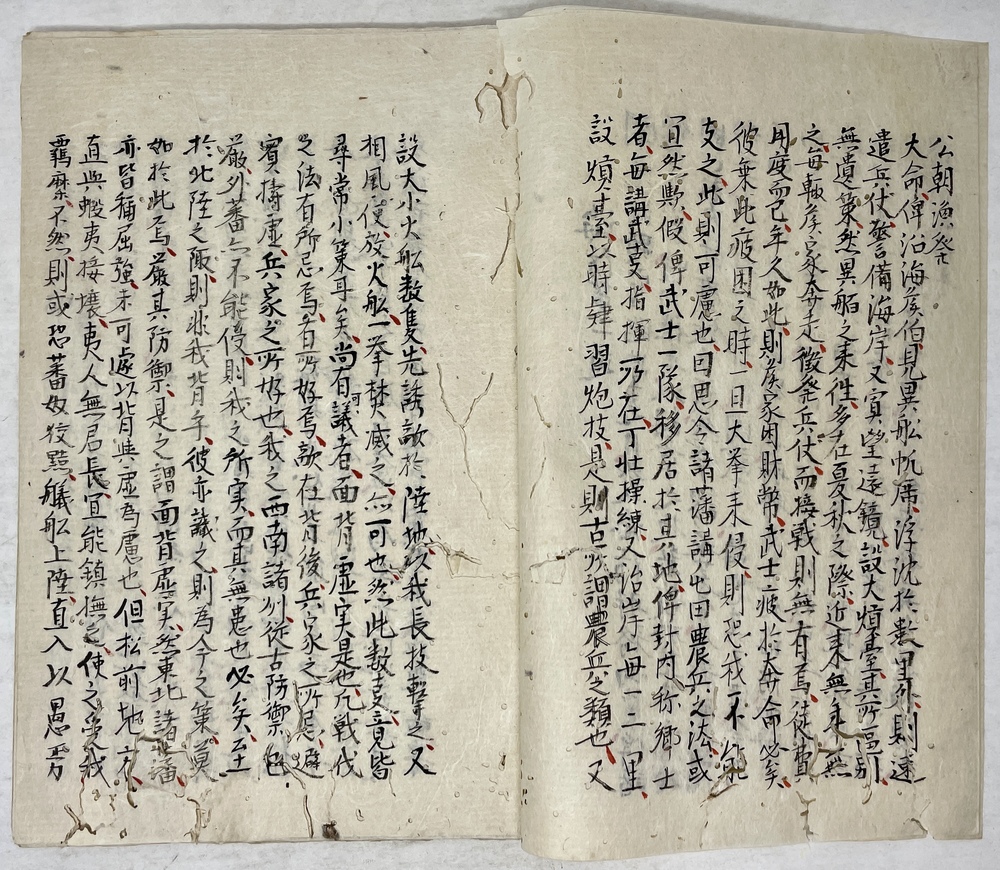 公朝渙発
大命俾沿海矦伯見異舩帆席浮沈於数里外則速
遣兵仗警備海岸又實望遠鏡設大煩臺其所區別
無遺策然異舶之来往多在夏秋之際近来無年無
之毎報矦家奔走徴発兵仗而接戦則無有焉徒費
用度而已年久如此則矦家困財幣武士疲於奔命矣
彼乗此疲困之時一旦大挙来侵則恐我不能
支之此則可慮也因思今諸藩講屯田農兵之法或
宜然歟假俾武士一隊移居於其地俾封内称郷士
者毎講武叓指揮所在丁壮操練又沿岸毎一二里
設煩臺以時肄習炮技是則古所謂農兵之類也又
設大小火舩数隻先誘敵於陸地以我長技撃之又
相風便放火舩一挙焚滅之亦可也然此数叓竟皆
尋常小策耳矣尚有可議者面背虚実是也凢戦伐
之法有所忌焉者所好焉敵在背後兵家之所忌避
實擣虚兵家之所好也我之西南諸州従古防禦
嚴外蕃亦不能侵則我之所実而其無患也必矣至
於北陸之陬則非我背乎彼亦議之則為今之策莫
如於此焉嚴其防禦是之謂面背虚実然東北諸藩
亦皆称屈強未可遽以背与虚為慮也但松前地方
直與蝦夷接壌夷人無君長宜能鎮撫之使之受我
羈縻不然則或恐蕃奴狡黠艤舩上陸直入以愚